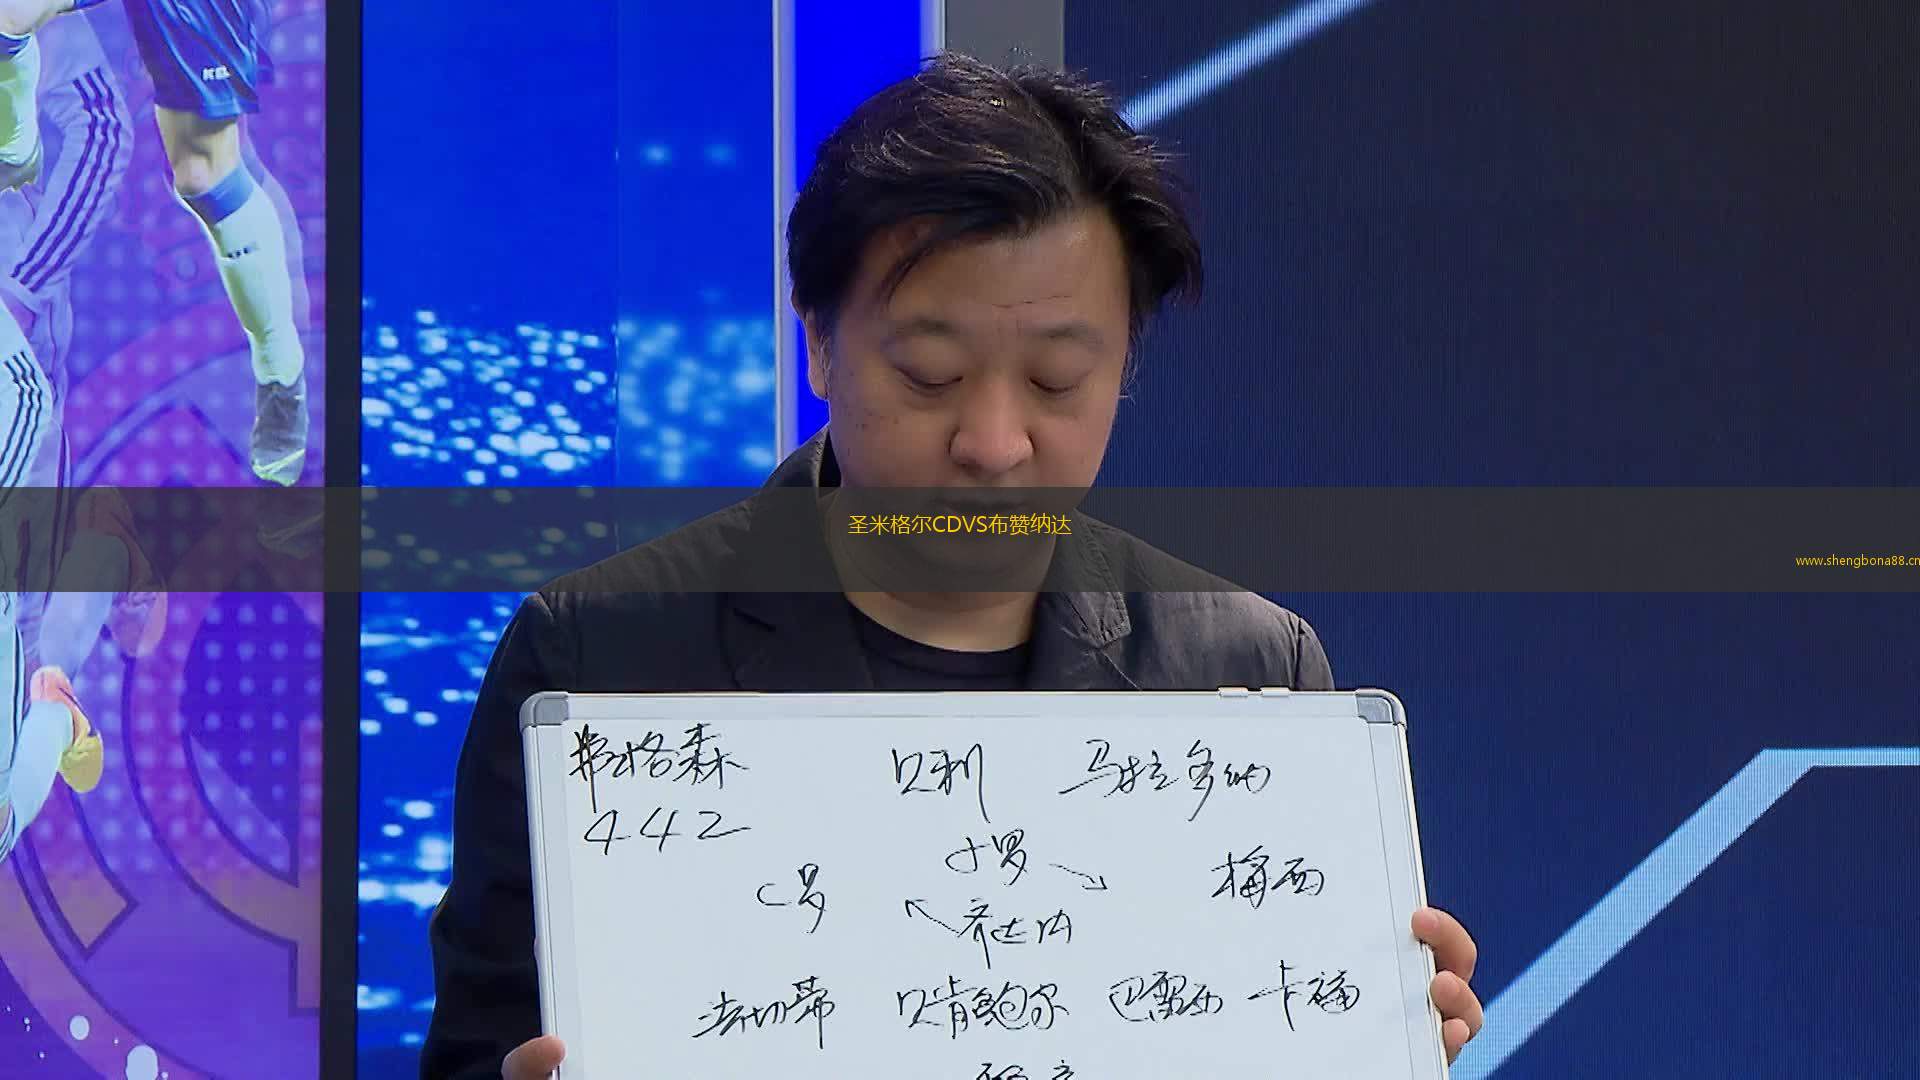 KEL
圣米格尔CDVS布赞纳达
www.shengbona88.cn
弗格森 贝利 马拉多纳
442
小罗
C罗 梅西
齐达内
法切蒂 贝肯鲍尔 巴雷西 卡福